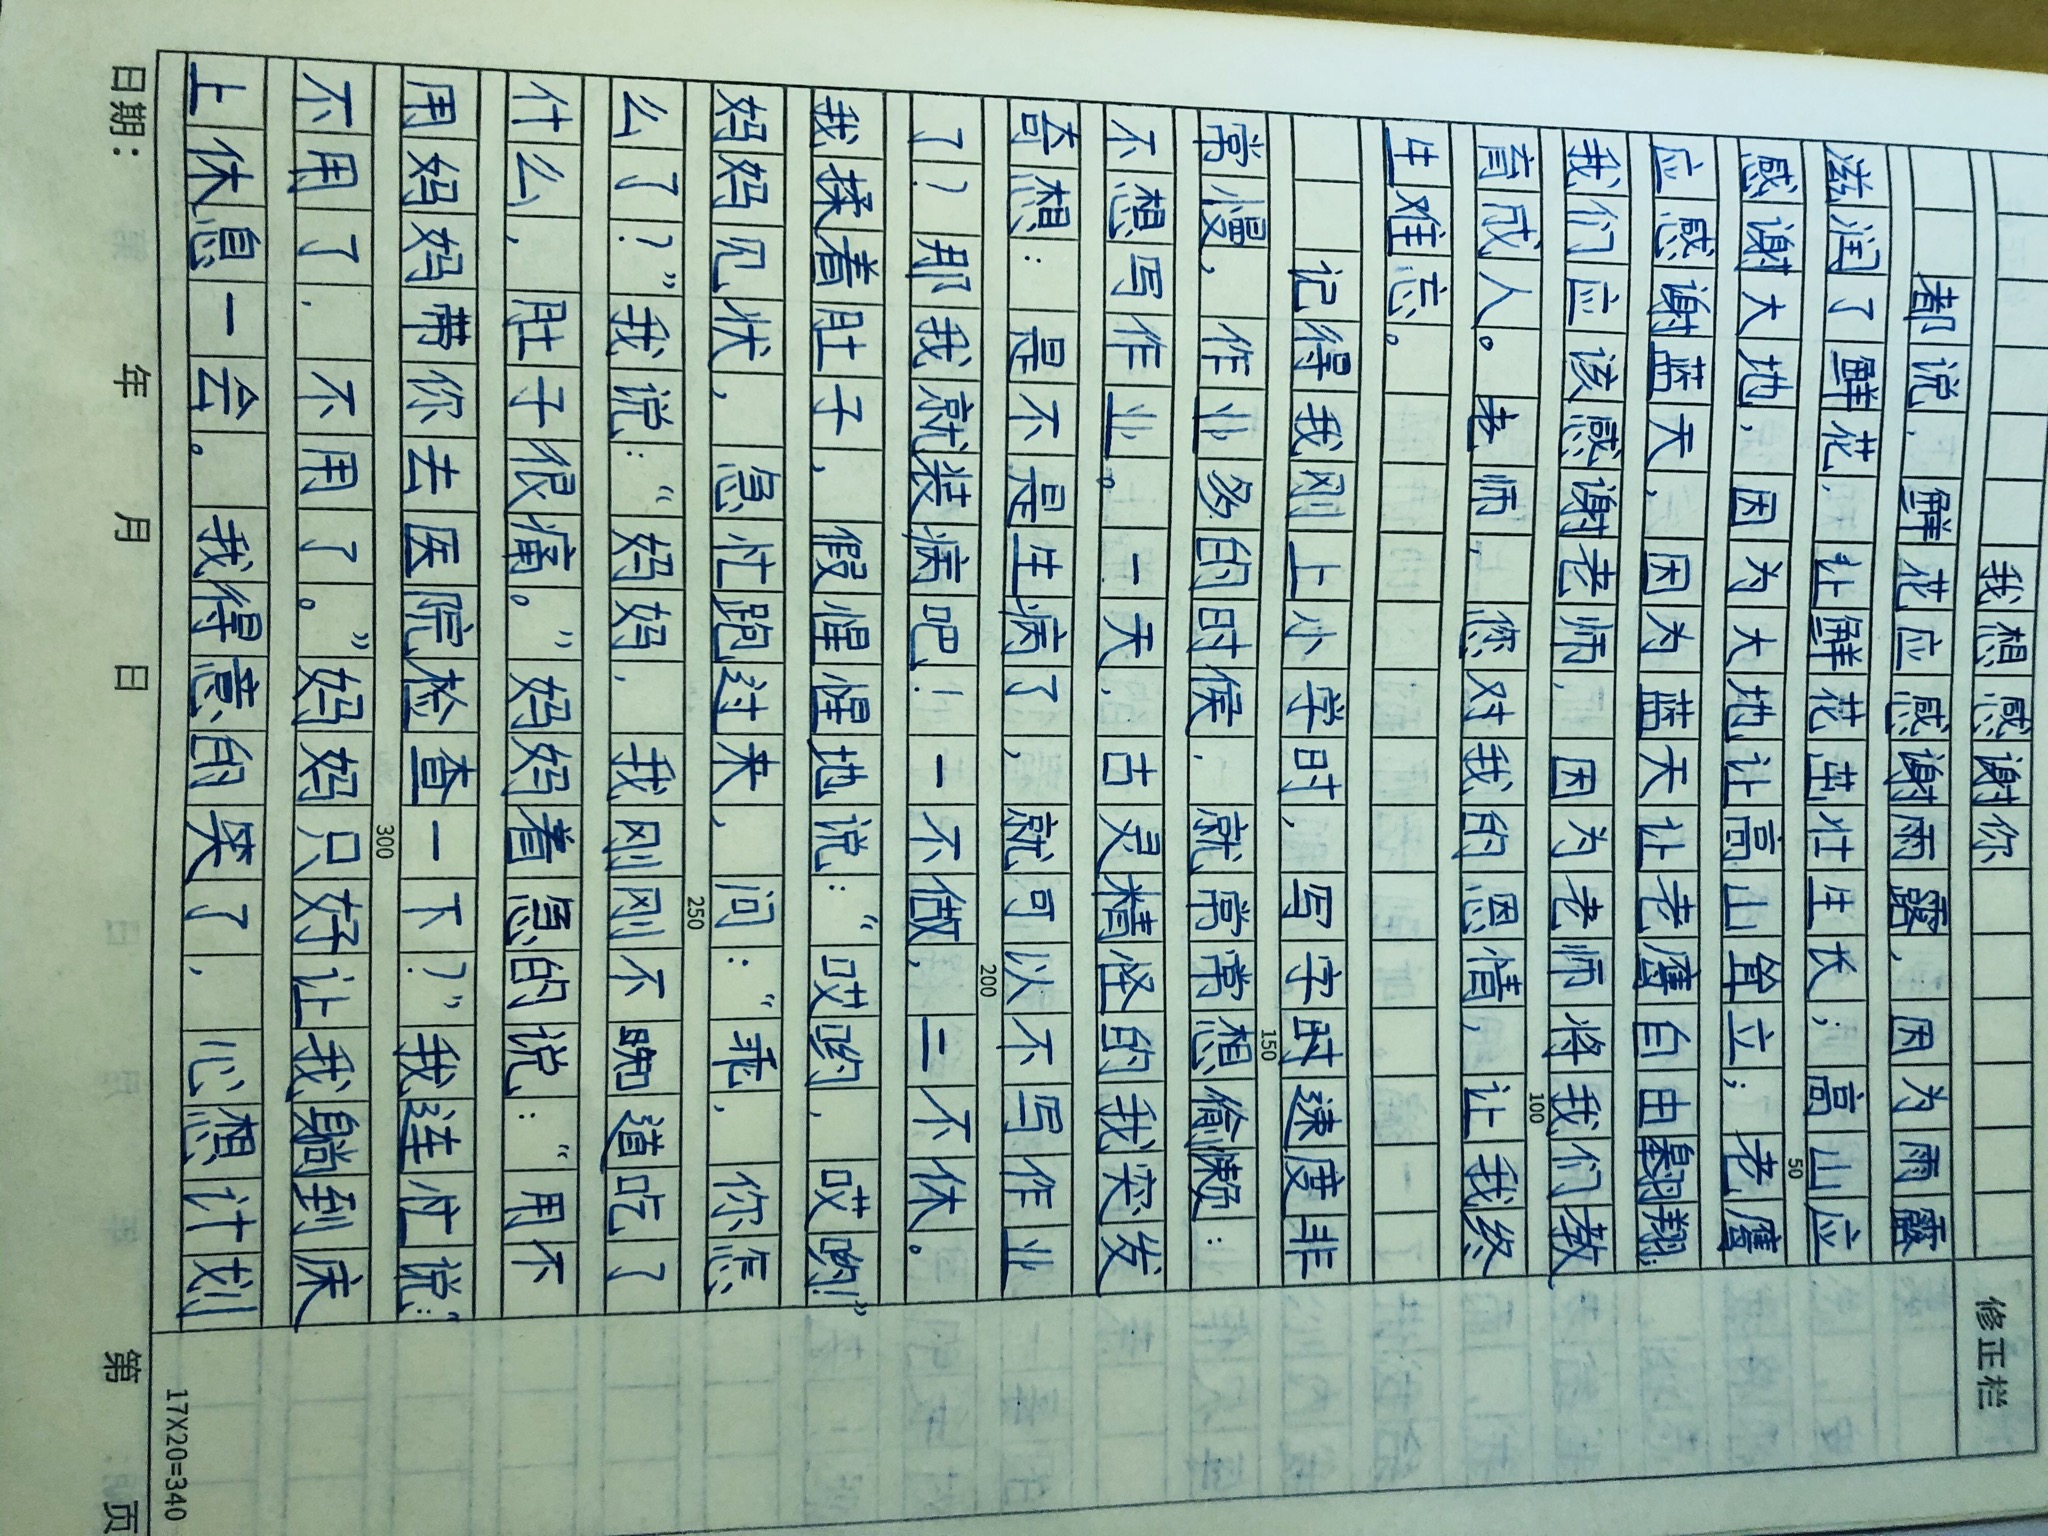 我想感谢你
都说，鲜花应感谢雨露，因为雨露
滋润了鲜花，让鲜花茁壮生长；高山应
感谢大地，因为大地让高山耸立；老鹰
应感谢蓝天，因为蓝天让老鹰自由翱翔。
我们应该感谢老师，因为老师将我们教
育成人。老师，您对我的恩情，让我终
生难忘。
记得我刚上小学时，写字时速度非
常慢，作业多的时候，就常常想偷懒：
不想写作业。一天，古灵精怪的我突发
奇想：是不是生病了，就可以不写作业
了？那我就装病吧！一不做，二不休。
我揉着肚子，假惺惺地说：“哎哟，哎哟！”
妈妈见状，急忙跑过来，问：“乖，你怎
么了？”我说：“妈妈，我刚刚不晓道吃了
什么，肚子很痛。”妈妈着急的说：“用不
用妈妈带你去医院检查一下？”我连忙说：“
不用了，不用了。”妈妈只好让我躺到床
上休息一会。我得意的笑了，心想计划
50
100
150
200
250
300
修正栏
日期： 年 月 日 第 页
17X20=340